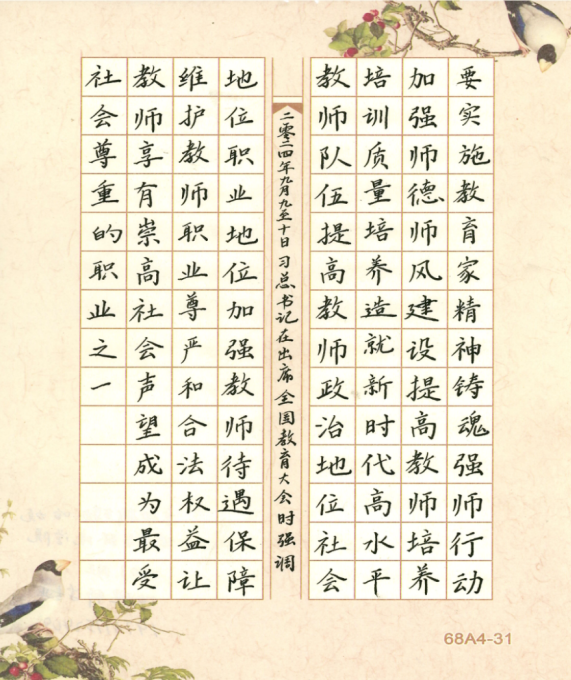 要实施教育家精神铸魂强师行动
加强师德师风建设提高教师培养
培训质量培养造就新时代高水平
教师队伍提高教师政治地位社会
二零二四年九月九至十日习总书记在出席全国教育大会时强调
地位职业地位加强教师待遇保障
维护教师职业尊严和合法权益让
教师享有崇高社会声望成为最受
社会尊重的职业之一
68A4-31